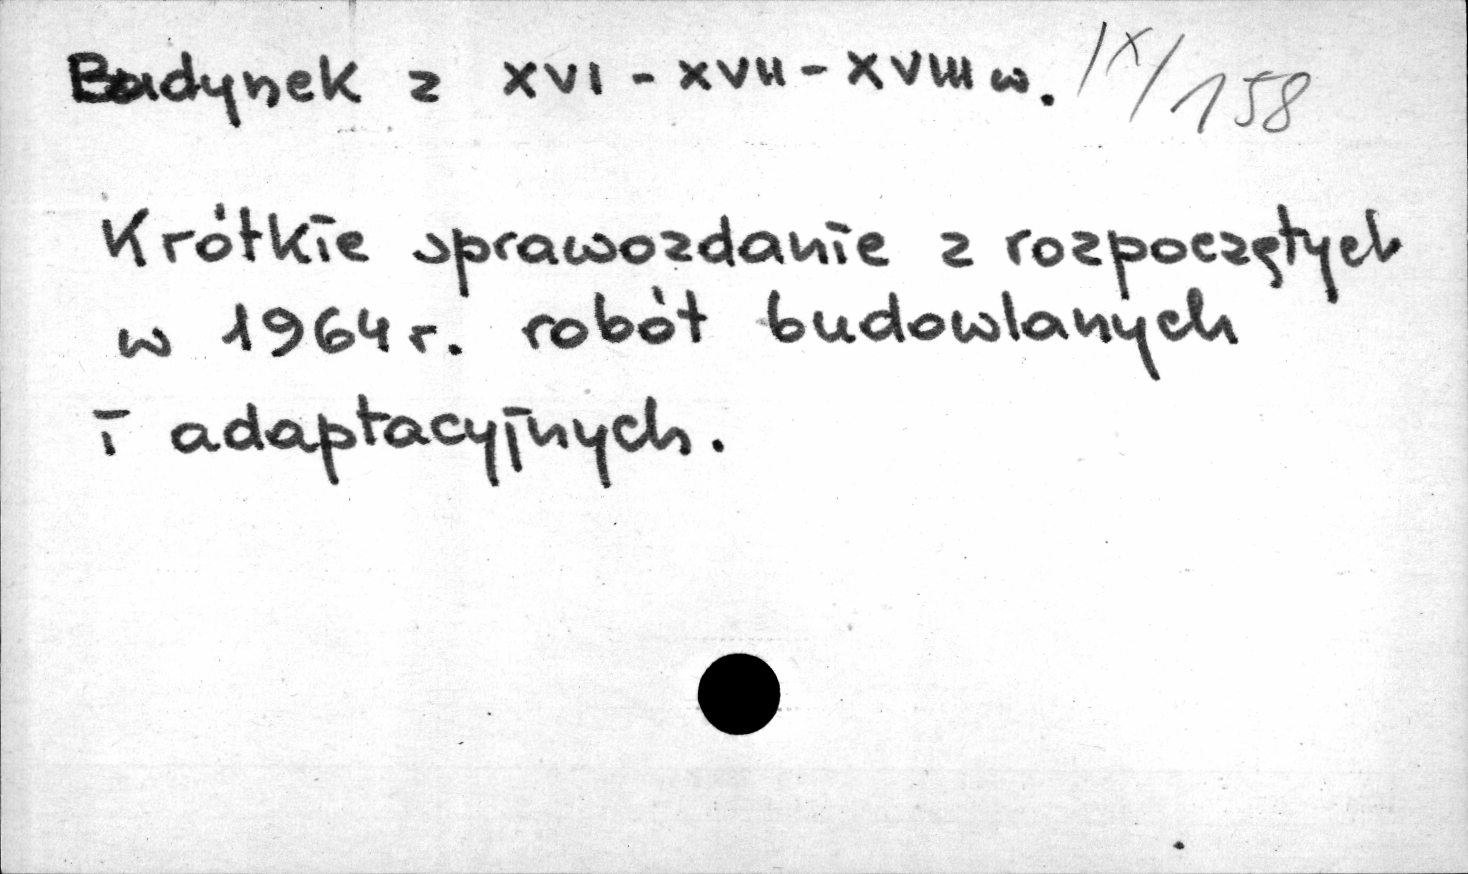 Budynek z XVI - XVII - XVIII w. IX/158
Krótkie sprawozdanie z rozpoczętych
w 1964 r. robót budowlanych
i adaptacyjnych.